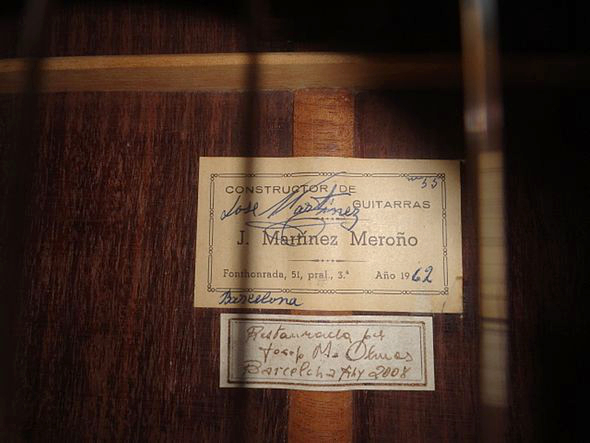 nº 55
CONSTRUCTOR DE
GUITARRAS
Jose Martinez
J. Martínez Meroño
Fonthonrada, 51, pral., 3.ª Año 1962
Barcelona
Restaurada per
Josep M. Olmos
Barcelona Any 2008